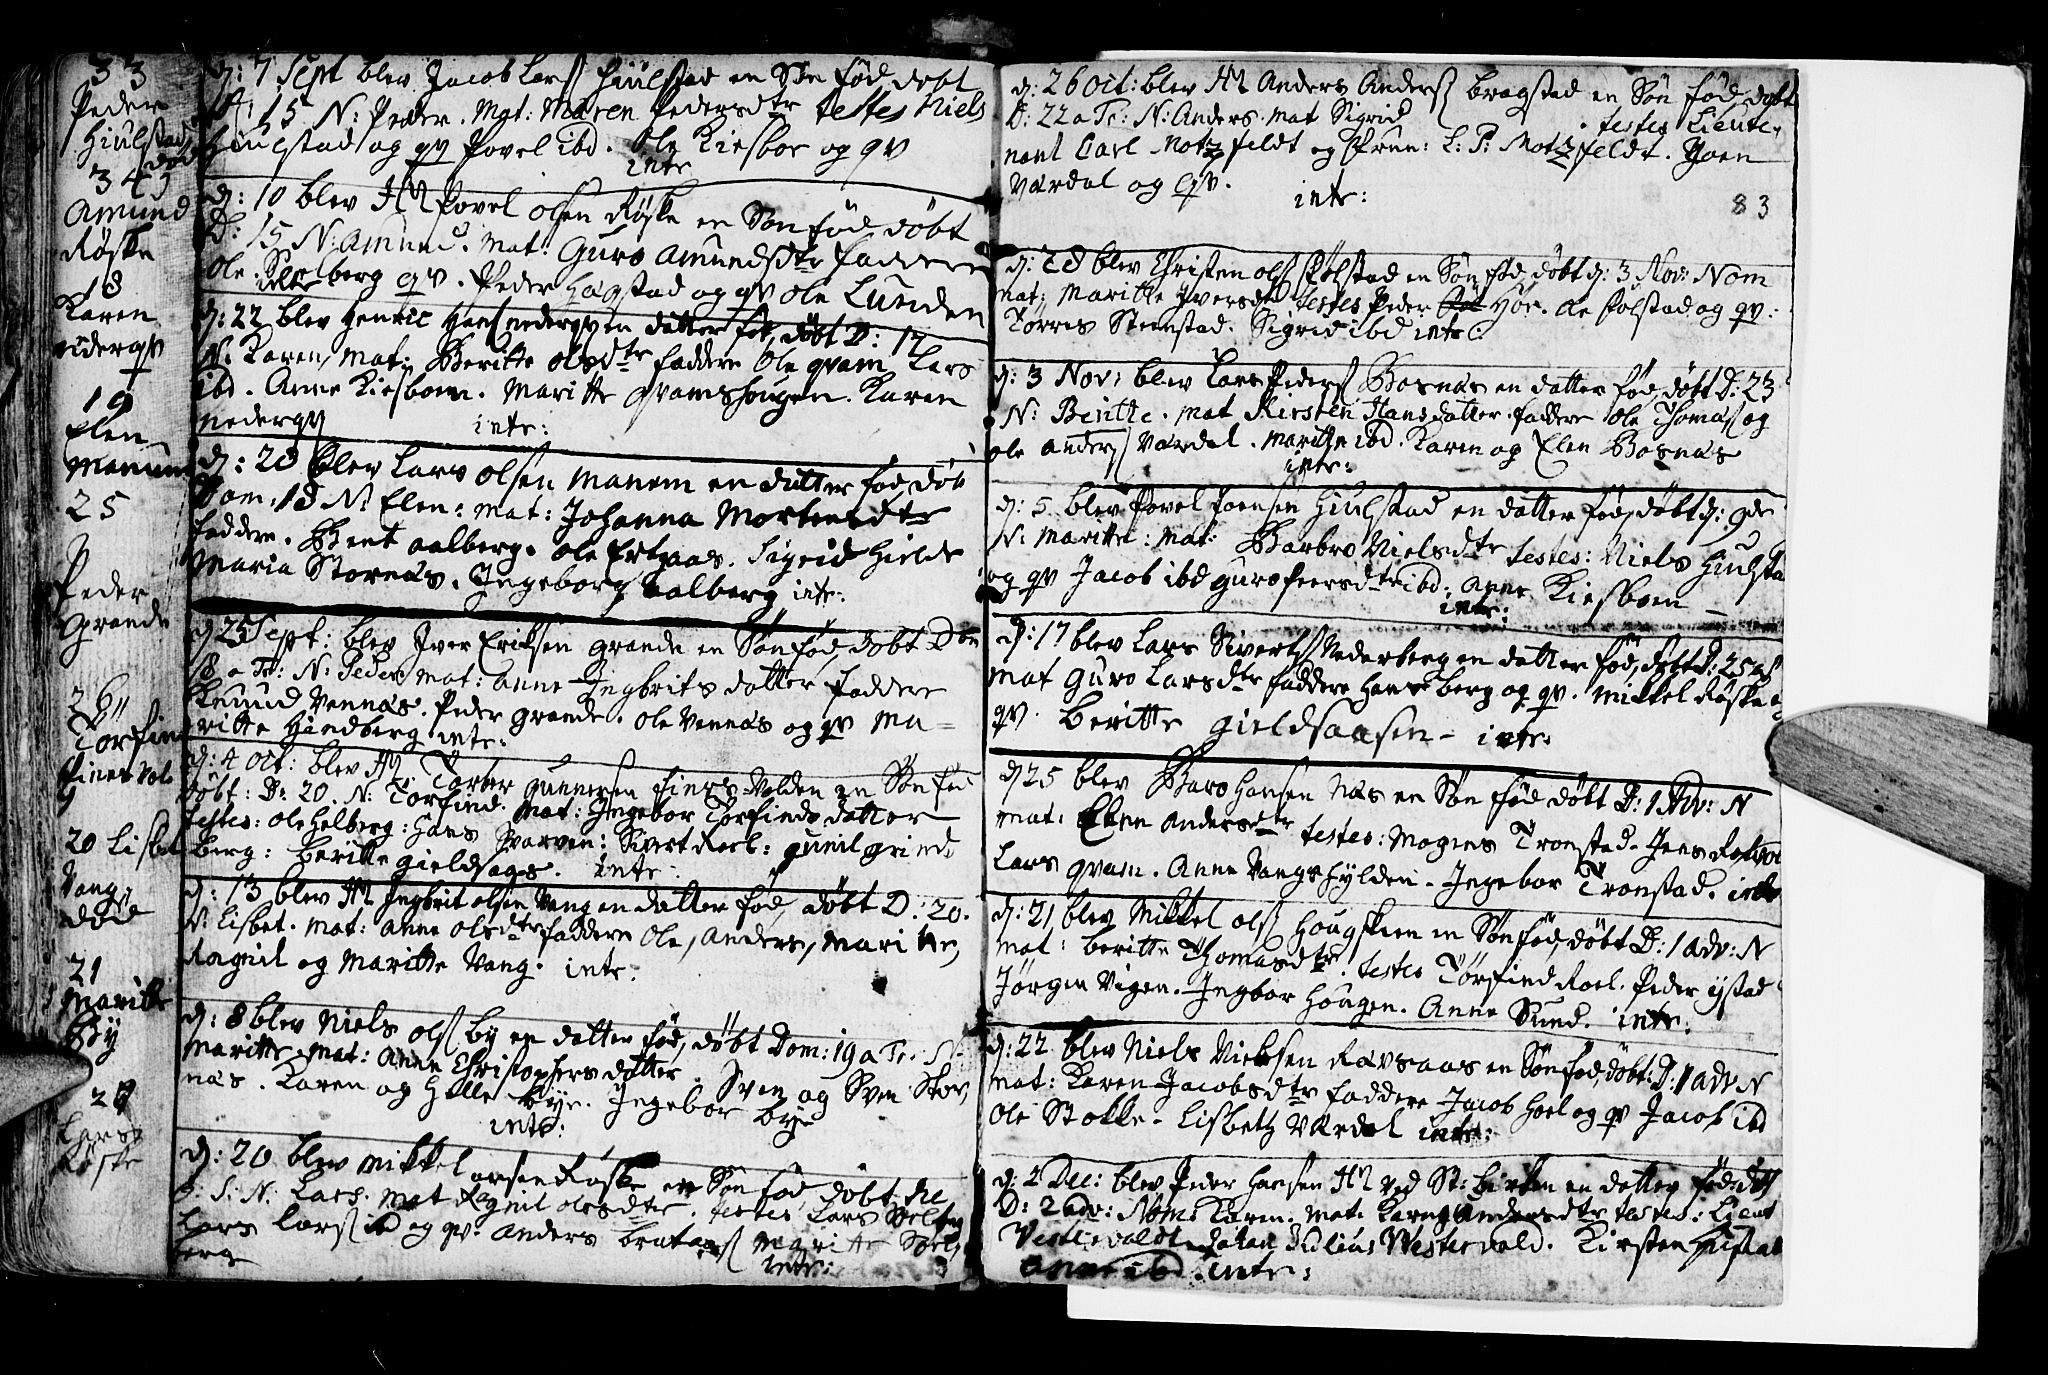 33
Peder
Hiulstad
død
34
Amund
Røske
18
Karen
nidergv
19
Elen
Manum
25
Peder
Grande
26
Torfin
finesvol
20 Lisbet
Vang
død
21
Maritte
By
28
Lars
Røske
d: 7 Sept blev Jacob Lars Hiulstad en Søn fød døbt
15 N: Peder. Mat: Maren Pedersdtr testes Niels
Hiulstad og qv Povel ibd. Ole Kiesboe og qv
intr
d: 10 blev Povel olsen Røske en Søn fød døbt
D: 15 N: Amund. mat: Guro Amundsdtr faddere
ole Selberg qv. Peder Hagstad og qv ole Lunden
d: 22 blev Henric Hans nedergv en datter fød, døbt D: 17
N: Karen mat: Beritte olsdtr faddere Ole qvam Lars
ibd. Anne Kiesboen. Maritte qvamshougen. Karen
nedergv intr:
d: 28 blev Lars olsen Manem en datter fød, døbt
Dom: 18 N: Elen: mat: Johanna Mortensdtr
faddere. Bent aalberg. ole Ertzaas. Sigrid Hielde
Maria Stornas. Ingeborg aalberg intr:
d 25 Sept: blev Iver Eriksen grande en Søn fød, døbt Dom
18 a Tr: N: Peder mat: anne Ingbrits datter faddere
Knuud Vennas. Peder grande. ole Vennas og qv Ma-
ritte Hindberg intr:
d: 4 Oct: blev Torber Gunnersen finesvolden en Søn fød
døbt: D: 20. N: Torfind. mat: Ingebor Torfinds datter
testes: ole helberg: Hans Svarven: Sivert Roel: gunil grind
berg: beritte gieldsaas. intr:
d: 13 blev Ingbrit olsen Vang en datter fød, døbt D: 20.
N: Lisbet. mat: anne olsdtr faddere Ole, Anders, Maritte,
Ragnil og Maritte Vang. intr:
d: 8 blev Niels ols by en datter fød, døbt Dom: 19 a Tr: N:
Maritte. mat: Anne Christophers datter. Sven og Sven Stor,
nas. Karen og Helle Bye. Ingebor bye
intr:
d: 20 blev Mikkel Larsen Røske en Søn fød døbt
N: Lars. mat Ragnil olsdtr. testes Lars Selberg
Lars Lars ibd og qv. anders brataas Maritte Sel-
berg intr:
d: 26 Oct: blev Anders Anders bragstad en Søn fød døbt
D: 22 a Tr: N: Anders. mat Sigrid testes Lieute,
nant Carl Motzfeldt og frue: L: P: Motzfeldt. Joen
Værdal og qv. intr:
83
d: 28 blev Christen ols Folstad en Søn fød, døbt d: 3 Nov: Nom
mat: Maritte Iversdtr testes Peder Hoe. ole Folstad og qv:
Torris Steenstad. Sigrid ibd intr:
d: 3 Nov: blev Lars Peders Bosnas en datter fød, døbt D: 23
N: Beritte. mat Kirsten Hans datter. faddere ole Thomas og
ole anders Værdal. Maritte ibd. Karen og Elen Bosnas
intr:
d: 5 blev Povel Joensen Hiulstad en datter fød, døbt d: 9de
N: Maritte: mat: Barbro Nielsdtr testes: Niels Hiulsta
og qv Jacob ibd guro Peersdtr ibd: Anne Kiesboen
intr:
D: 17 blev Lars Siverts Nederberg en datter fød, døbt D: 25
mat Guro Larsdtr faddere Hans berg og qv. Mikkel Røske
qv. Beritte gieldsaasen - intr:
d 25 blev Baro Hansen Nas en Søn fød døbt D: 1 Adv: N
mat: Elen andersdtr testes: Mogens Tronstad. Jens
Lars qvam. Anne Vangshylden. Ingebor Tronstad. intr
d: 21 blev Mikkel ols Hougskeen en Søn fød, døbt D: 1 adv: N
mat: beritte Thomasdtr. testes Torfind Roel. Peder ystad
Jørgen Vigen. Ingbor Hougen. Anne Sund. intr:
d: 22 blev Niels Nielsen Ravsaas en Søn fød, døbt D: 1 adv N
mat: Karen Jacobsdtr faddere Jacob Hoel og qv Jacob ibd
Ole Stokke. Lisbetz Værdal intr:
d: 2 Dec: blev Peder Hansen ved St: en datter fød døbt
D: 2 adv: Nom: Karen. mat: Karen Andersdtr testes: Lieut
Vestervaldt Johan Julius Westervald. Kirsten Hustad
Anne ibd. intr: